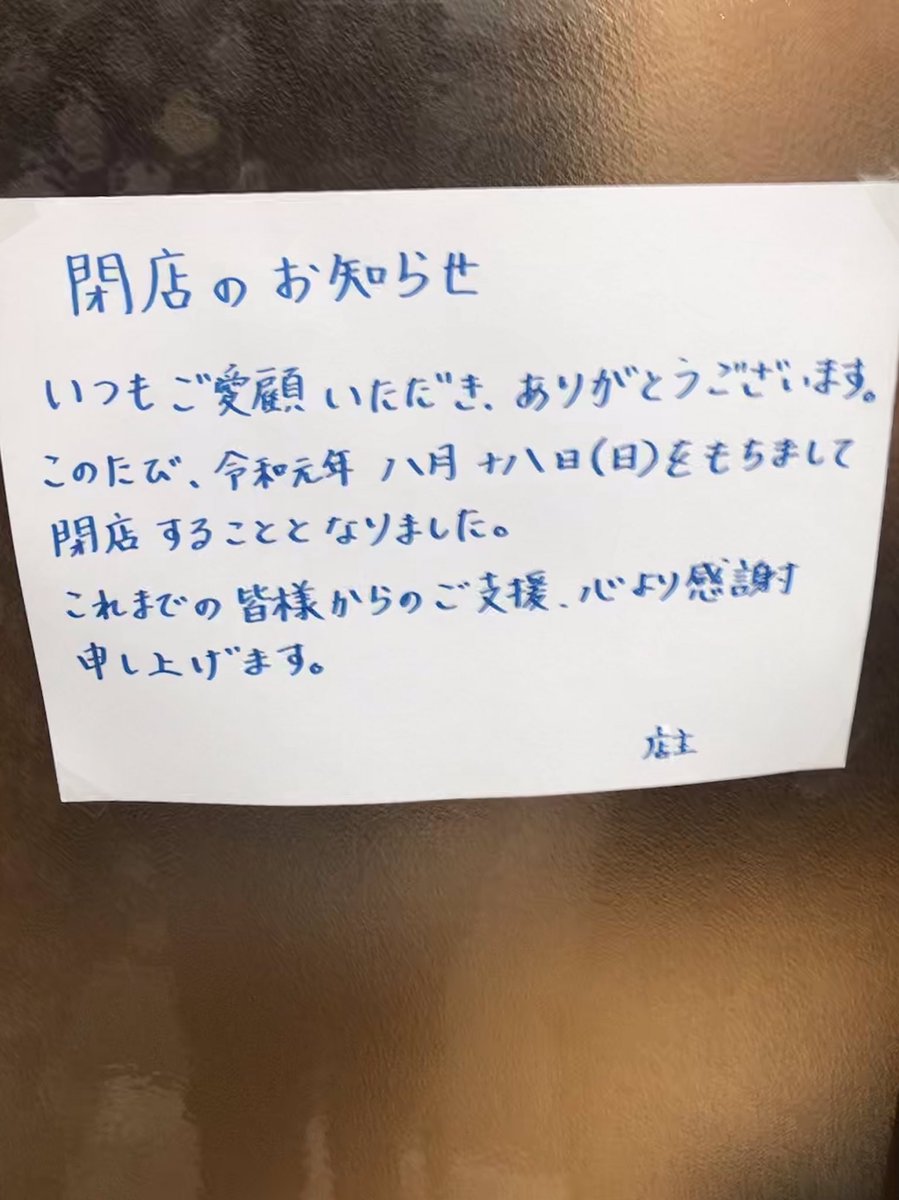 閉店のお知らせ
いつもご愛顧いただき、ありがとうございます。
このたび、令和元年 八月十八日(日)をもちまして
閉店することとなりました。
これまでの皆様からのご支援、心より感謝
申し上げます。
店主